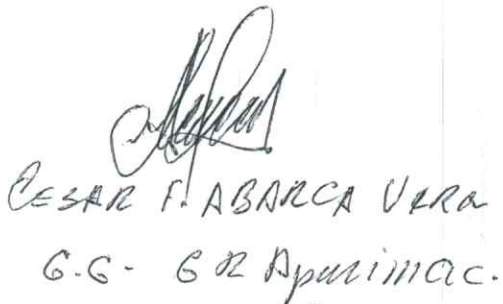 CESAR F. ABARCA VERA
G.G. - GR Apurimac.